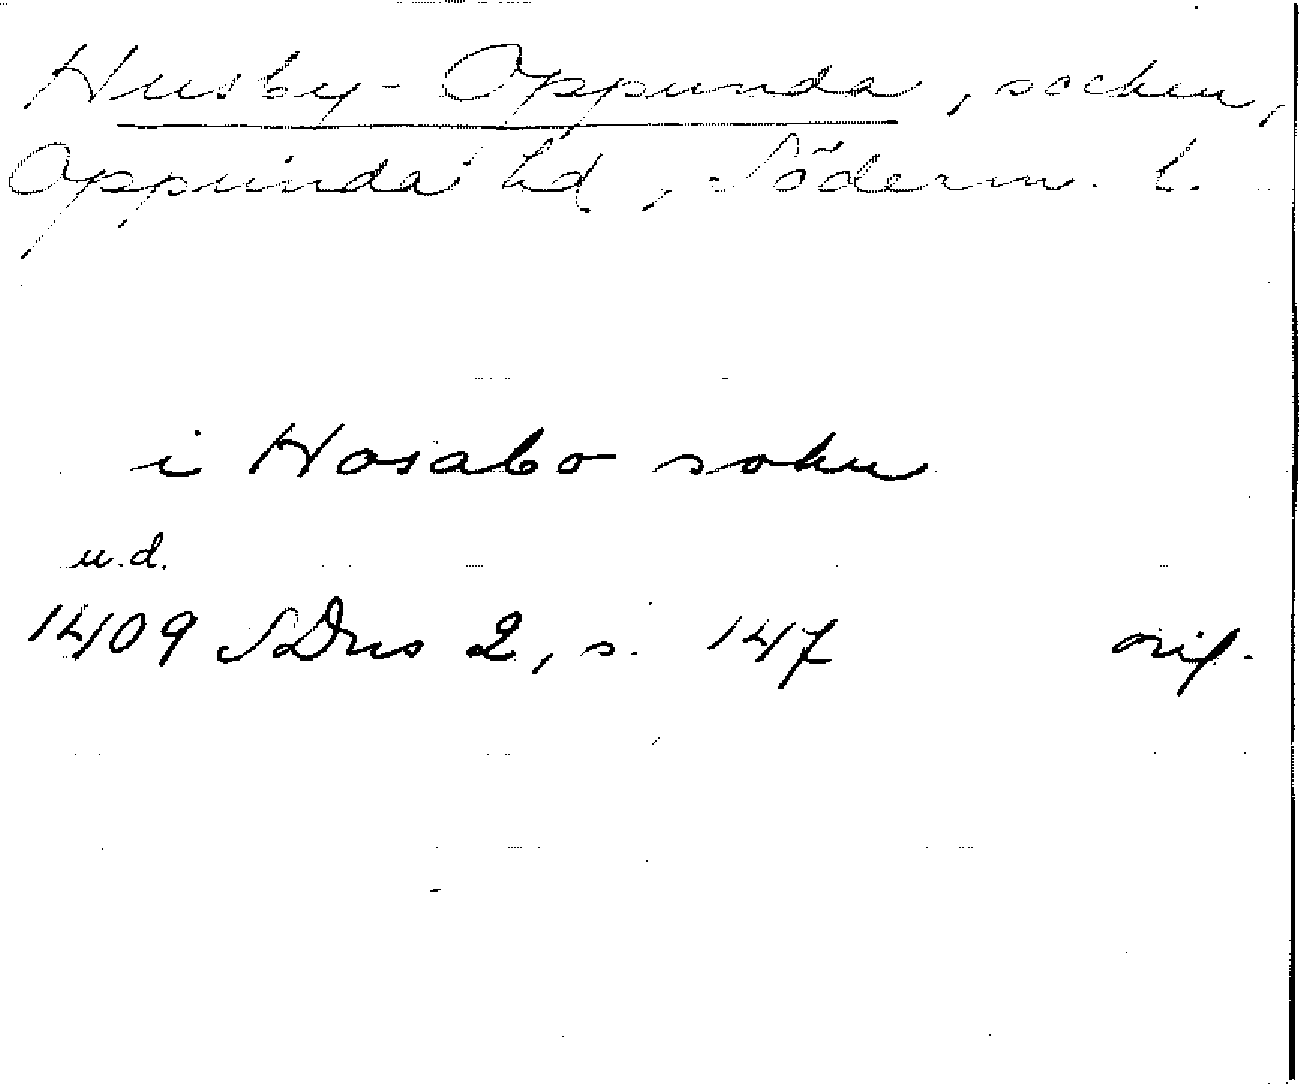 Husby-Oppunda, socken,
Oppunda hd, Söderm. l.
i Hosabo sokn
u.d.
1409 SDns 2, s. 147 orig.